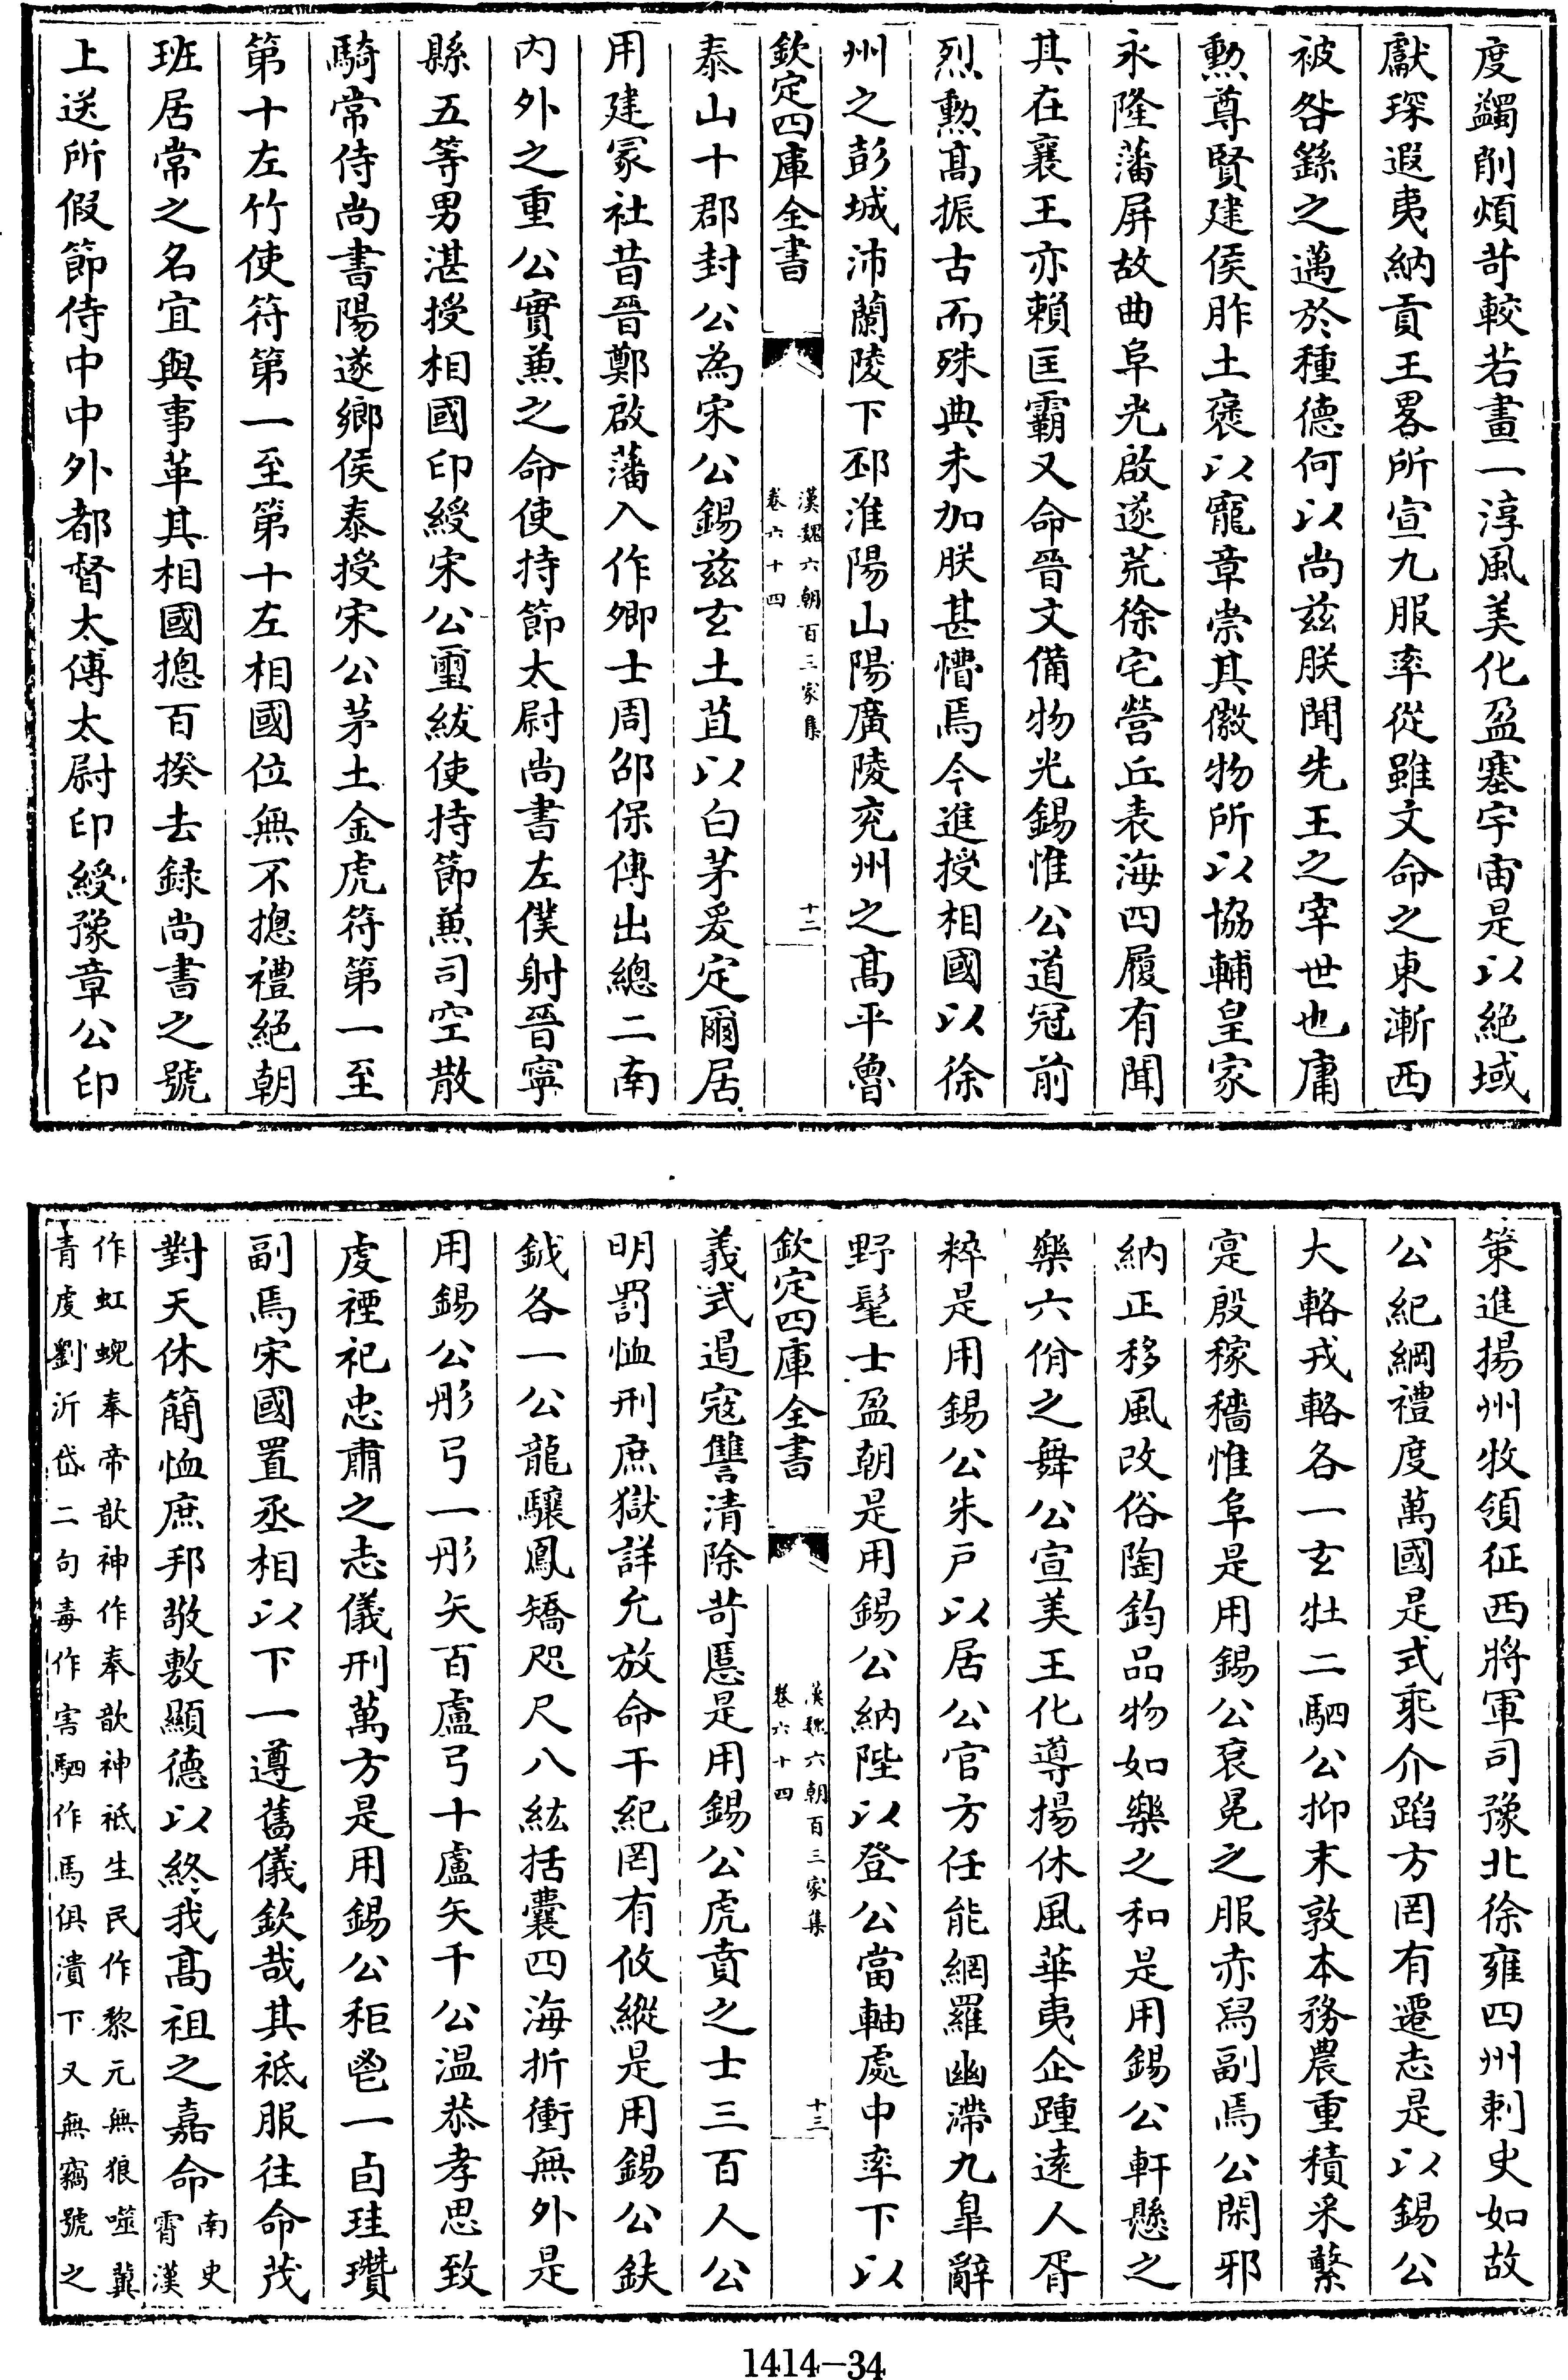 度蠲削煩苛較若畫一淳風美化盈塞宇宙是以絕域
獻琛遐夷納貢王畧所宣九服率從雖文命之東漸西
被咎繇之邁於種德何以尚兹朕聞先王之宰世也庸
勲尊賢建侯胙土褒以寵章崇其徽物所以協輔皇家
永隆藩屏故曲阜光啟遂荒徐宅營丘表海四履有聞
其在襄王亦賴匡霸又命晉文備物光錫惟公道冠前
烈勲髙振古而殊典未加朕甚懵焉今進授相國以徐
州之彭城沛蘭陵下邳淮陽山陽廣陵兖州之髙平魯
欽定四庫全書
漢魏六朝百三家集
卷六十四
十二
泰山十郡封公為宋公錫兹玄土苴以白茅爰定爾居
用建冢社昔晉鄭啟藩入作卿士周邵保傅出總二南
内外之重公實兼之命使持節太尉尚書左僕射晉寧
縣五等男湛授相國印綬宋公璽紱使持節兼司空散
騎常侍尚書陽遂鄉侯泰授宋公茅土金虎符第一至
第十左竹使符第一至第十左相國位無不摠禮絕朝
班居常之名宜與事革其相國摠百揆去録尚書之號
上送所假節侍中中外都督太傅太尉印綬豫章公印
策進揚州牧領征西將軍司豫北徐雍四州刺史如故
公紀綱禮度萬國是式乘介蹈方罔有遷志是以錫公
大輅戎輅各一玄牡二駟公抑末敦本務農重積采蘩
寔殷稼穡惟阜是用錫公衮冕之服赤舄副焉公閑邪
納正移風改俗陶鈞品物如樂之和是用錫公軒懸之
樂六佾之舞公宣美王化導揚休風華夷企踵遠人胥
粹是用錫公朱戸以居公官方任能網羅幽滯九臯辭
野髦士盈朝是用錫公納陛以登公當軸處中率下以
欽定四庫全書
漢魏六朝百三家集
卷六十四
十三
義式遏寇讐清除苛慝是用錫公虎賁之士三百人公
明罰恤刑庶獄詳允放命干紀罔有攸縱是用錫公鈇
鉞各一公龍驤鳳矯咫尺八紘括囊四海折衝無外是
用錫公彤弓一彤矢百盧弓十盧矢千公温恭孝思致
虔禋祀忠肅之志儀刑萬方是用錫公秬鬯一卣珪瓚
副焉宋國置丞相以下一遵舊儀欽哉其祗服往命茂
對天休簡恤庶邦敬敷顯德以終我髙祖之嘉命南史
霄漢
作虹蜺奉帝歆神作奉歆神祇生民作黎元無狼噬冀
青虔劉沂岱二句毒作害駟作馬俱潰下又無竊號之
1414-34